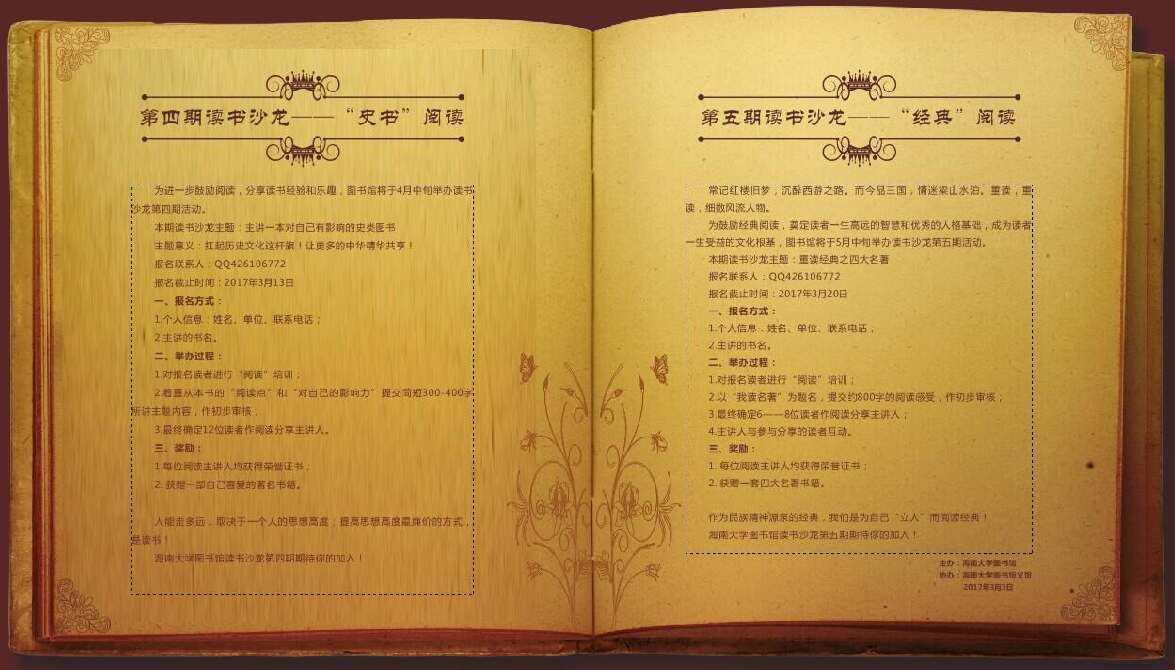 第四期读书沙龙——“史书”阅读
为进一步鼓励阅读，分享读书经验和乐趣，图书馆将于4月中旬举办读书
沙龙第四期活动。
本期读书沙龙主题：主讲一本对自己有影响的史类图书
主题意义：扛起历史文化这杆旗！让更多的中华精华共享！
报名联系人：QQ426106772
报名截止时间：2017年3月13日
一、报名方式：
1.个人信息：姓名、单位、联系电话；
2.主讲的书名。
二、举办过程：
1.对报名读者进行“阅读”培训；
2.着重从本书的“阅读点”和“对自己的影响力”提交简短300-400字
所讲主题内容，作初步审核．
3.最终确定12位读者作阅读分享主讲人。
三、奖励：
1.每位阅读主讲人均获得荣誉证书；
2.获赠一部自己喜爱的著名书籍。
人能走多远，取决于一个人的思想高度，提高思想高度最廉价的方式，
是读书！
海南大学图书馆读书沙龙第四期期待你的加入！
第五期读书沙龙——“经典”阅读
常记红楼旧梦，沉醉西游之路。而今显三国，情迷梁山水泊。重读，重
读，细数风流人物。
为鼓励经典阅读，奠定读者一生高远的智慧和优秀的人格基础，成为读者
一生受益的文化根基，图书馆将于5月中旬举办读书沙龙第五期活动。
本期读书沙龙主题：重读经典之四大名著
报名联系人：QQ426106772
报名截止时间：2017年3月20日
一、报名方式：
1.个人信息：姓名、单位、联系电话；
2.主讲的书名。
二、举办过程：
1.对报名读者进行“阅读”培训；
2.以“我读名著”为题名，提交约800字的阅读感受，作初步审核；
3.最终确定6——8位读者作阅读分享主讲人；
4.主讲人与参与分享的读者互动。
三、奖励：
1.每位阅读主讲人均获得荣誉证书；
2.获赠一套四大名著书籍。
作为民族精神源泉的经典，我们是为自己“立人”而阅读经典！
海南大学图书馆读书沙龙第五期期待你的加入！
主办：海南大学图书馆
协办：海南大学图书馆
2017年3月3日